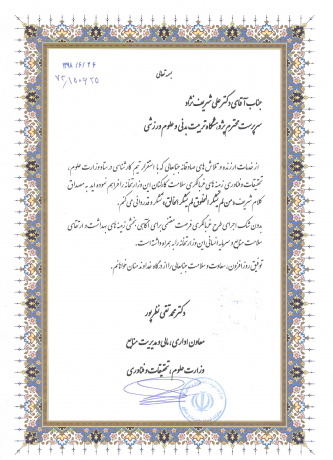 بسمه تعالی
۱۳۹۸/۶/۲۶
۷۲/۱۵۰۶۲۵
جناب آقای دکتر علی شریف نژاد
سرپرست محترم پژوهشگاه تربیت بدنی و علوم ورزشی
از خدمات ارزنده و تلاش های صادقانه جنابعالی که با استقرار تیم کارشناسی در ستاد وزارت علوم،
تحقیقات و فناوری زمینه های غربالگری سلامت کارکنان این وزارتخانه را فراهم نموده اید به مصداق
کلام شریف «من لم یشکر المخلوق لم یشکر الخالق»، تشکر و قدردانی می کنم.
بدون شک اجرای طرح غربالگری فرصت مغتنمی برای آگاهی بخشی زمینه های بهداشت و ارتقای
سلامت منابع و سرمایه انسانی این وزارتخانه را به همراه داشته است.
توفیق روز افزون، سعادت و سلامت جنابعالی را از درگاه خداوند منان خواهانم.
دکتر محمد تقی نظرپور
معاون اداری، مالی و مدیریت منابع
وزارت علوم، تحقیقات و فناوری